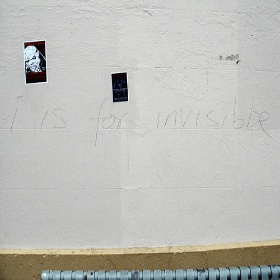 I is for invisible